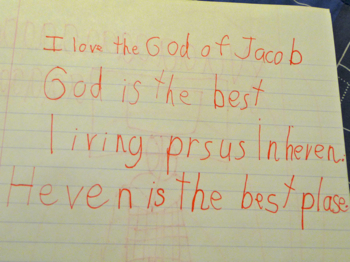 I love the God of Jacob
God is the best
living prsus In heven.
Heven is the best plase